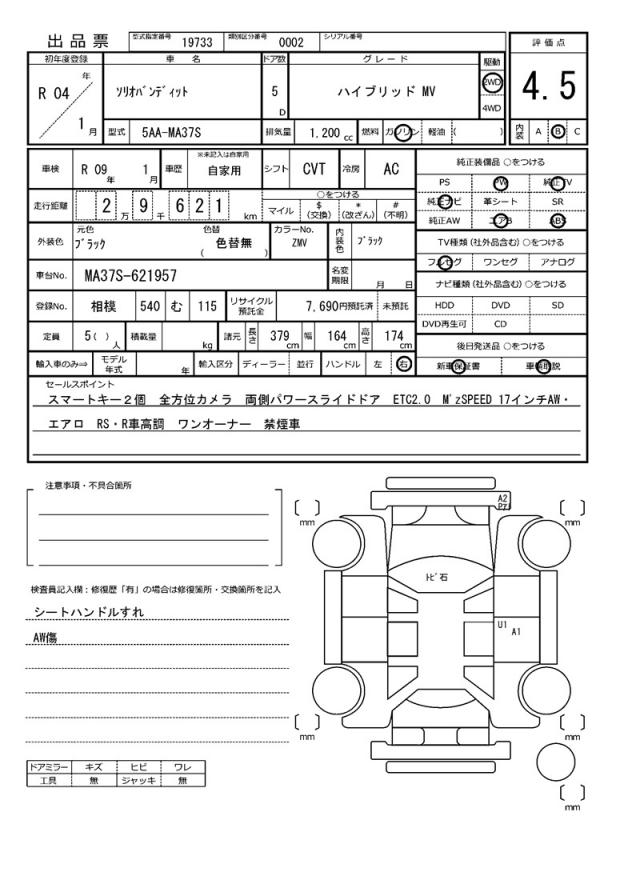 出品票 型式指定番号 19733 類別区分番号 0002 シリアル番号
評価点
4.5
初年度登録 車名 ドア数 グレード 駆動
R 04 年 1 月
ソリオバンディット 5 D ハイブリッド MV 2WD 4WD
型式 5AA-MA37S 排気量 1.200 cc 燃料 ガソリン 軽油 ( )
内装 A B C
車検 R 09 年 1 月 車歴 ※未記入は自家用 自家用 シフト CVT 冷房 AC
純正装備品 ○をつける
PS PW 純正TV
純正ナビ 革シート SR
純正AW エアB ABS
走行距離 2 万 9 千 6 2 1 km
○をつける
マイル $(交換) *(改ざん) #(不明)
外装色 元色 ブラック 色替 色替無 ( ) カラーNo. ZMV 内装色 ブラック
TV種類 (社外品含む) ○をつける
フルセグ ワンセグ アナログ
車台No. MA37S-621957 名変期限 月 日
ナビ種類 (社外品含む) ○をつける
HDD DVD SD
DVD再生可 CD
登録No. 相模 540 む 115 リサイクル預託金 7,690円預託済 未預託
定員 5( ) 人 積載量 kg 諸元 長さ 379 cm 幅 164 cm 高さ 174 cm
後日発送品 ○をつける
新車保証書 車輌取説
輸入車のみ⇒ モデル年式 年 輸入区分 ディーラー 並行 ハンドル 左 右
セールスポイント
スマートキー2個 全方位カメラ 両側パワースライドドア ETC2.0 M'zSPEED 17インチAW・
エアロ RS・R車高調 ワンオーナー 禁煙車
注意事項・不具合箇所
検査員記入欄：修復歴「有」の場合は修復箇所・交換箇所を記入
シートハンドルすれ
AW傷
ドアミラー キズ ヒビ ワレ
工具 無 ジャッキ 無
A2
mm
mm
トビ石
U1
A1
mm
mm
mm